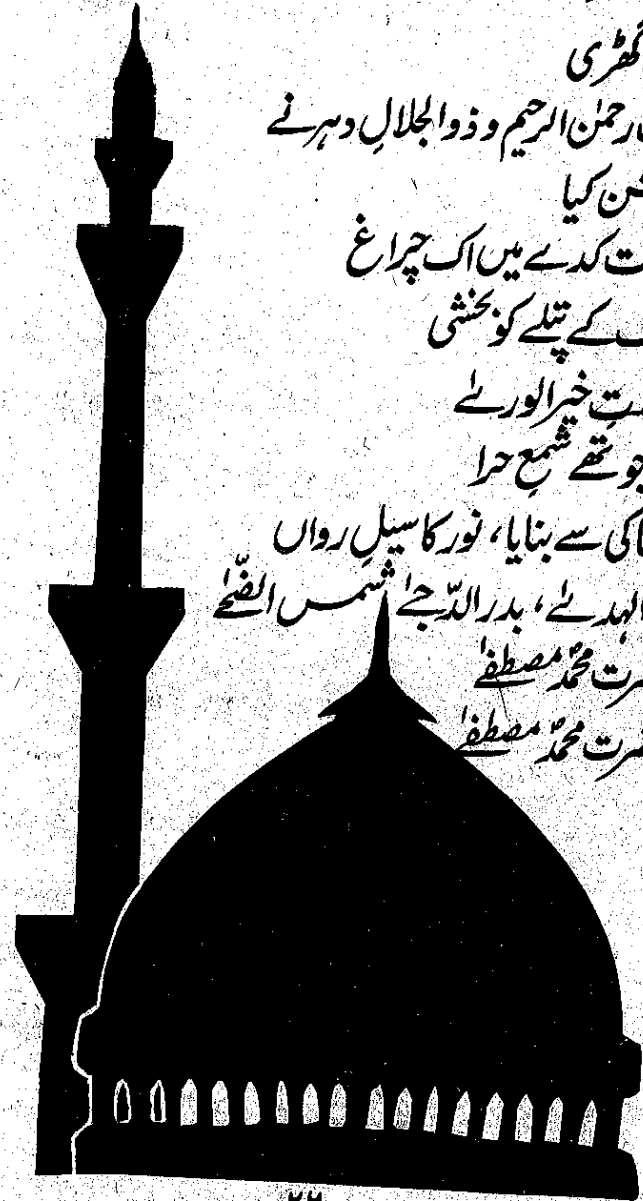 گھڑی
رحمٰن الرحیم و ذوالجلالِ دہر نے
کیا
کدے میں اک چراغ
کے پتلے کو بخشی
خیرالوریٰ
جو تھے شمعِ حرا
خاکی سے بنایا، نور کا سیلِ رواں
الہدیٰ، بدرالدّجیٰ شمس الضّحیٰ
حضرت محمدؐ مصطفےٰ
حضرت محمدؐ مصطفےٰ